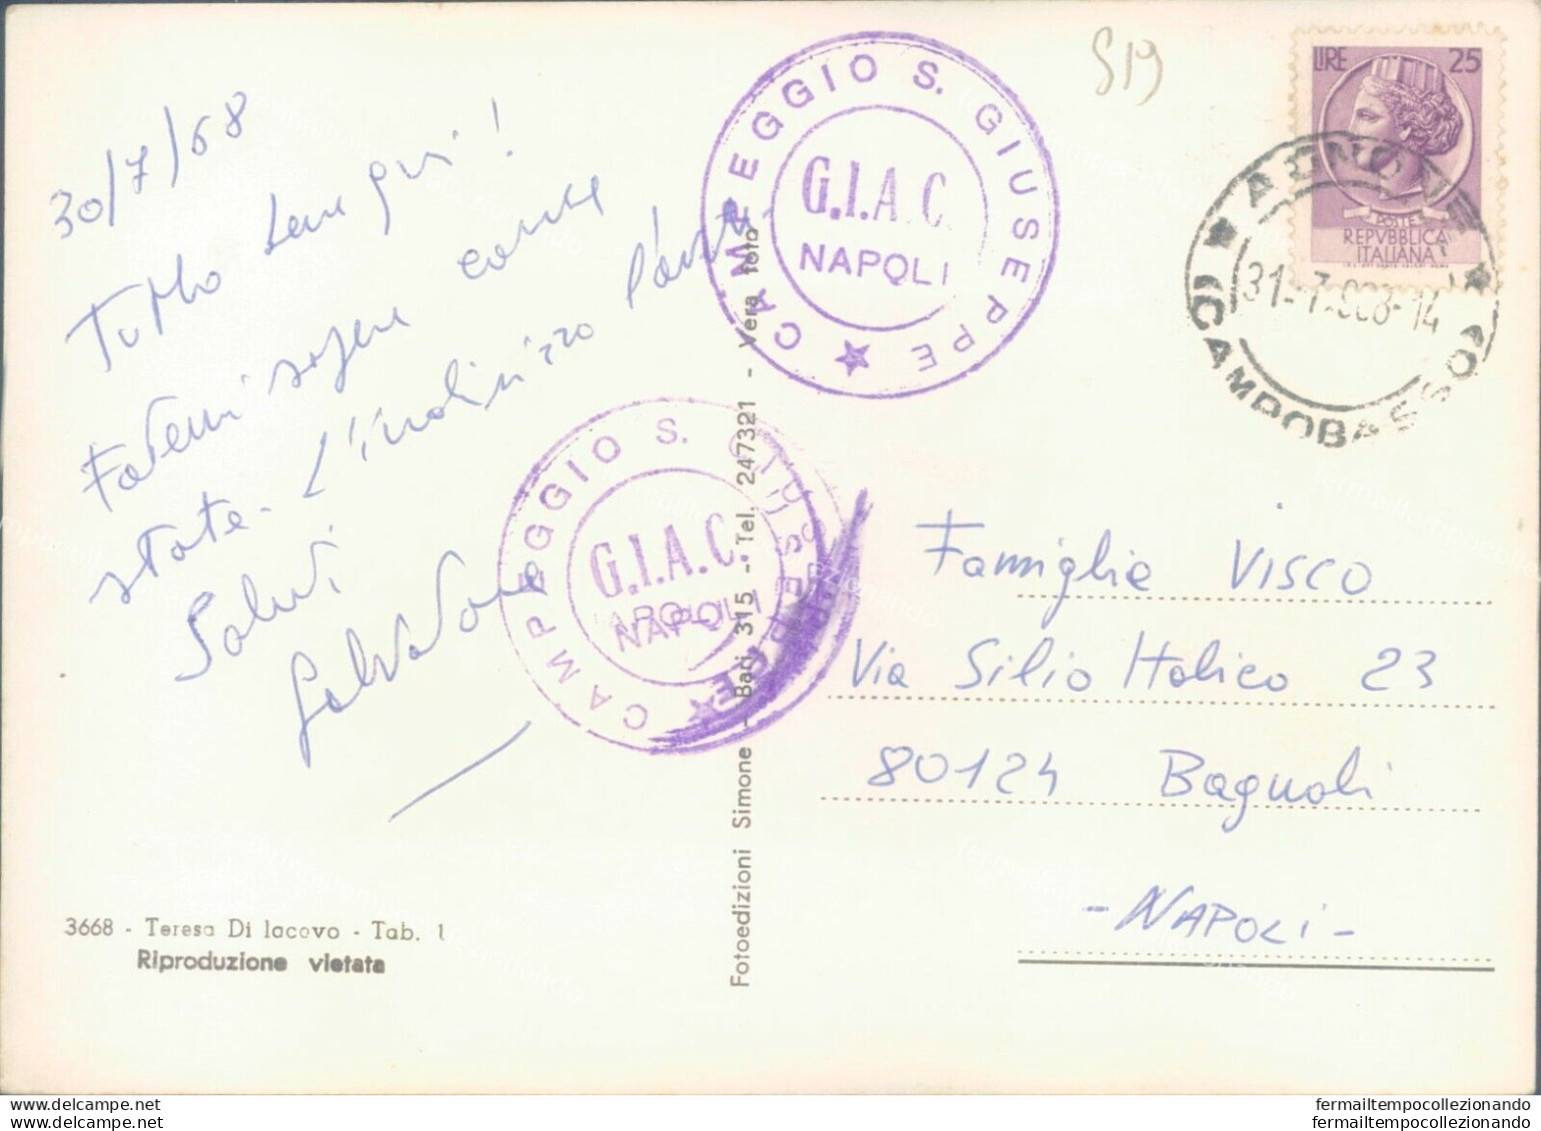 30/7/68
Tutto bene qui!
Fatemi sapere come
state - L'indirizzo
Saluti
Salvatore
3668 - Teresa Di Iacovo - Tab. 1
Riproduzione vietata
Fotoedizioni Simone - Bari 315 - Tel. 247321 - Vera foto
CAMPEGGIO S. GIUSEPPE
G.I.A.C.
NAPOLI
CAMPEGGIO S. GIUSEPPE
G.I.A.C.
NAPOLI
S19
LIRE 25
POSTE
REPVBBLICA
ITALIANA
AGNONE
(CAMPOBASSO)
Famiglia VISCO
Via Silio Italico 23
80124 Bagnoli
- NAPOLI -
fermailtempocollezionando
fermailtempocollezionando
fermailtempocollezionando
fermailtempocollezionando